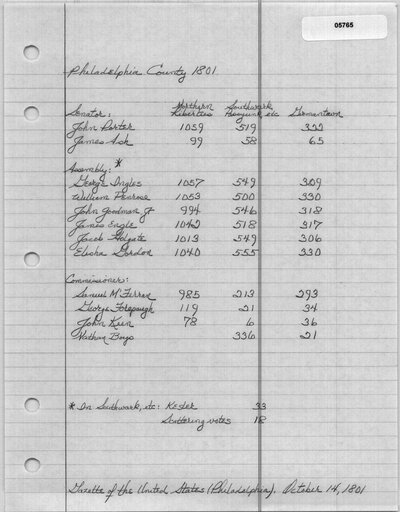 05765
Philadelphia County 1801
Northern Southwark,
Senator: Liberties Moyamen, etc Germantown
John Porter 1059 519 322
James Ash 99 58 65
Assembly: *
George Ingles 1057 549 309
William Penrose 1053 500 330
John Goodman Jr 994 546 318
James Engle 1042 518 317
Jacob Holgate 1013 549 306
Elisha Gordon 1040 555 330
Commissioner:
Samuel McFerran 985 213 293
George Forepaugh 119 21 34
John Keen 78 6 36
Nathan Boys 336 21
* In Southwark, etc: Kesler 33
Scattering votes 18
Gazette of the United States (Philadelphia). October 14, 1801